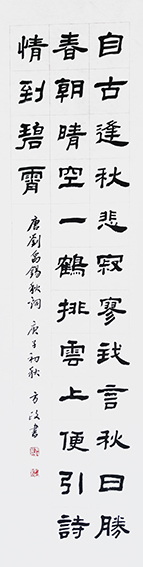 自古逢秋悲寂寥我言秋日勝
春朝晴空一鶴排雲上便引詩
情到碧霄
唐劉禹錫秋詞 庚子初秋 方 書